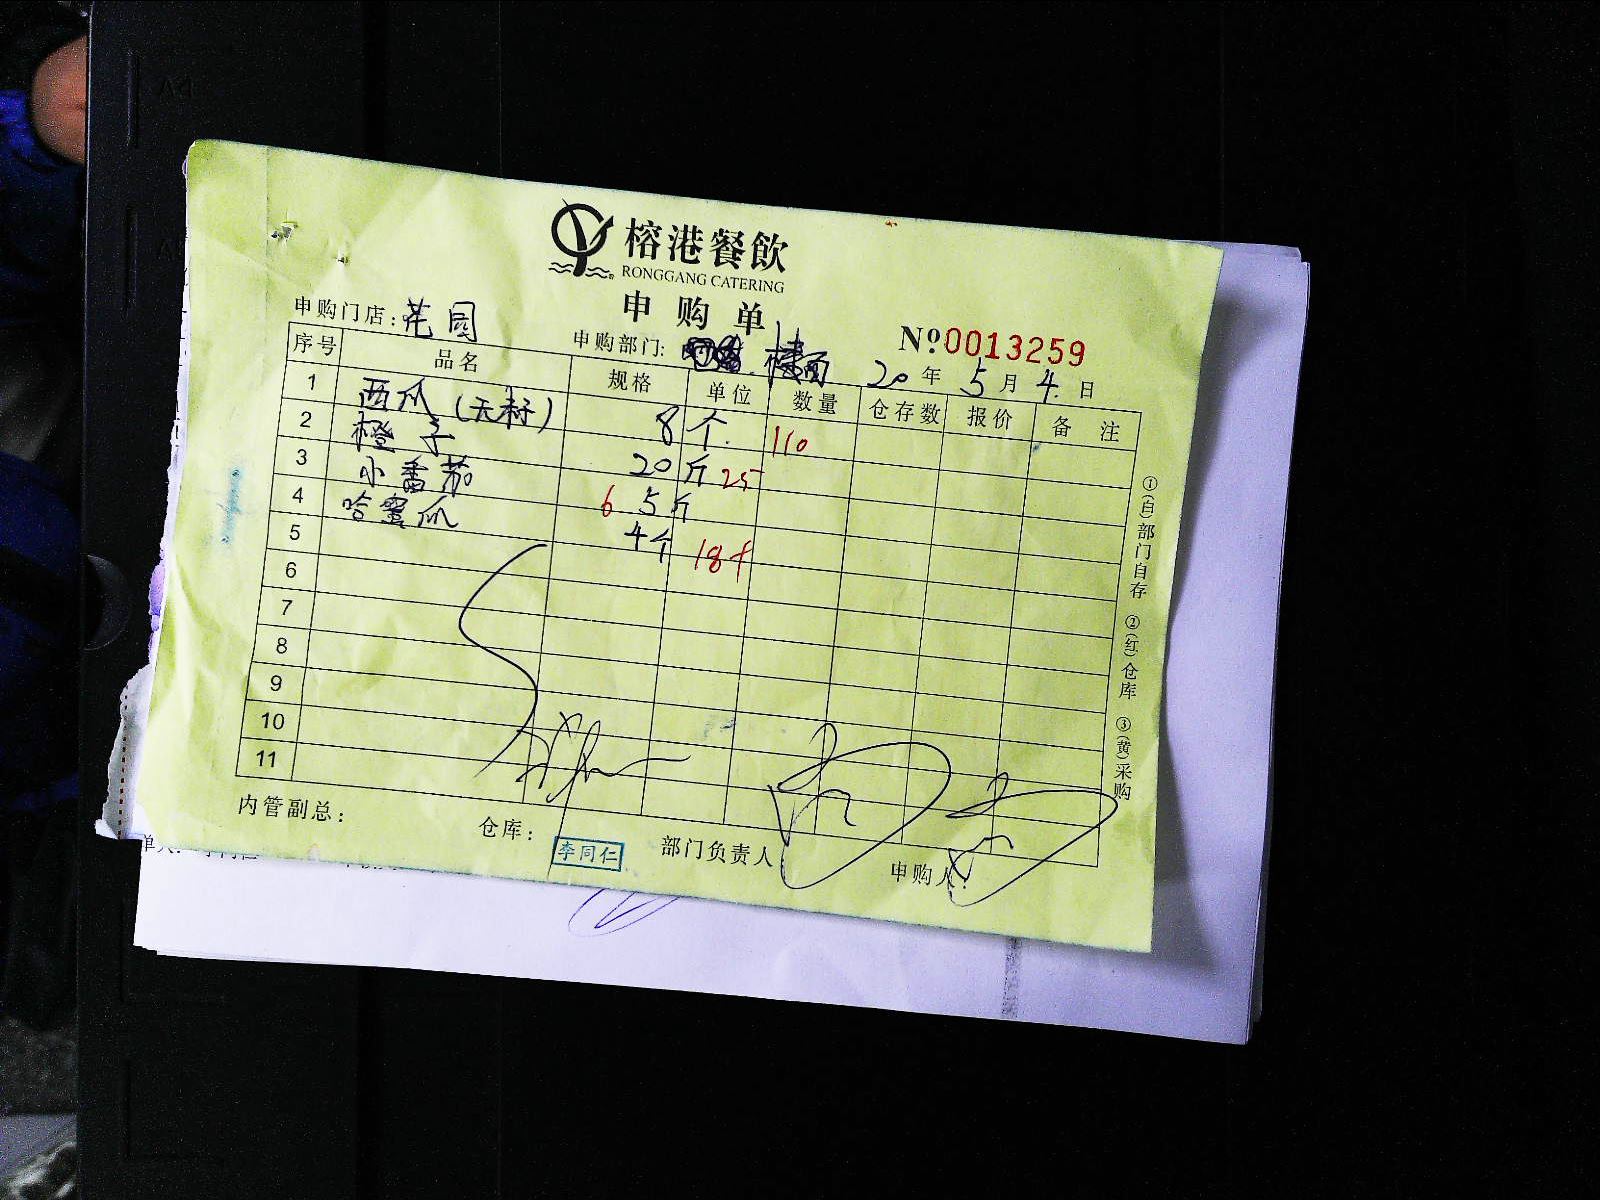 榕港餐飲
RONGGANG CATERING
申购单
申购门店: 花园
申购部门: 楼面
№0013259
20年 5月 4日
序号 品名 规格 单位 数量 仓存数 报价 备注
1 西瓜(无籽) 8 个 110
2 橙子 20 斤 25
3 小番茄 6 5 斤
4 哈蜜瓜 4个 18个
5
6
7
8
9
10
11
①(白)部门自存 ②(红)仓库 ③(黄)采购
内管副总:
仓库:
李同仁
部门负责人
申购人: